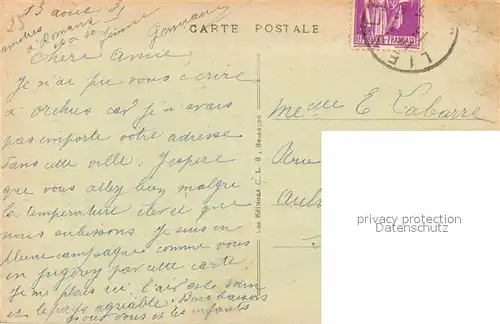 13 août
CARTE POSTALE
Germaine
Chère Amie
Je n'ai pu vous écrire
à Orchies car je n'avais
pas emporté votre adresse
dans cette ville. J'espère
que vous allez bien malgré
la température élevée que
nous subissons. Je suis en
pleine campagne comme vous
en jugerez par cette carte
Je me plais ici. l'air est sain
et le pays agréable. Bons baisers
pour vous et les enfants
Les Editions C. L. B., Besançon
LIE
Melle E Labarre
Rue
privacy protection
www.ansichtskarten-center.de